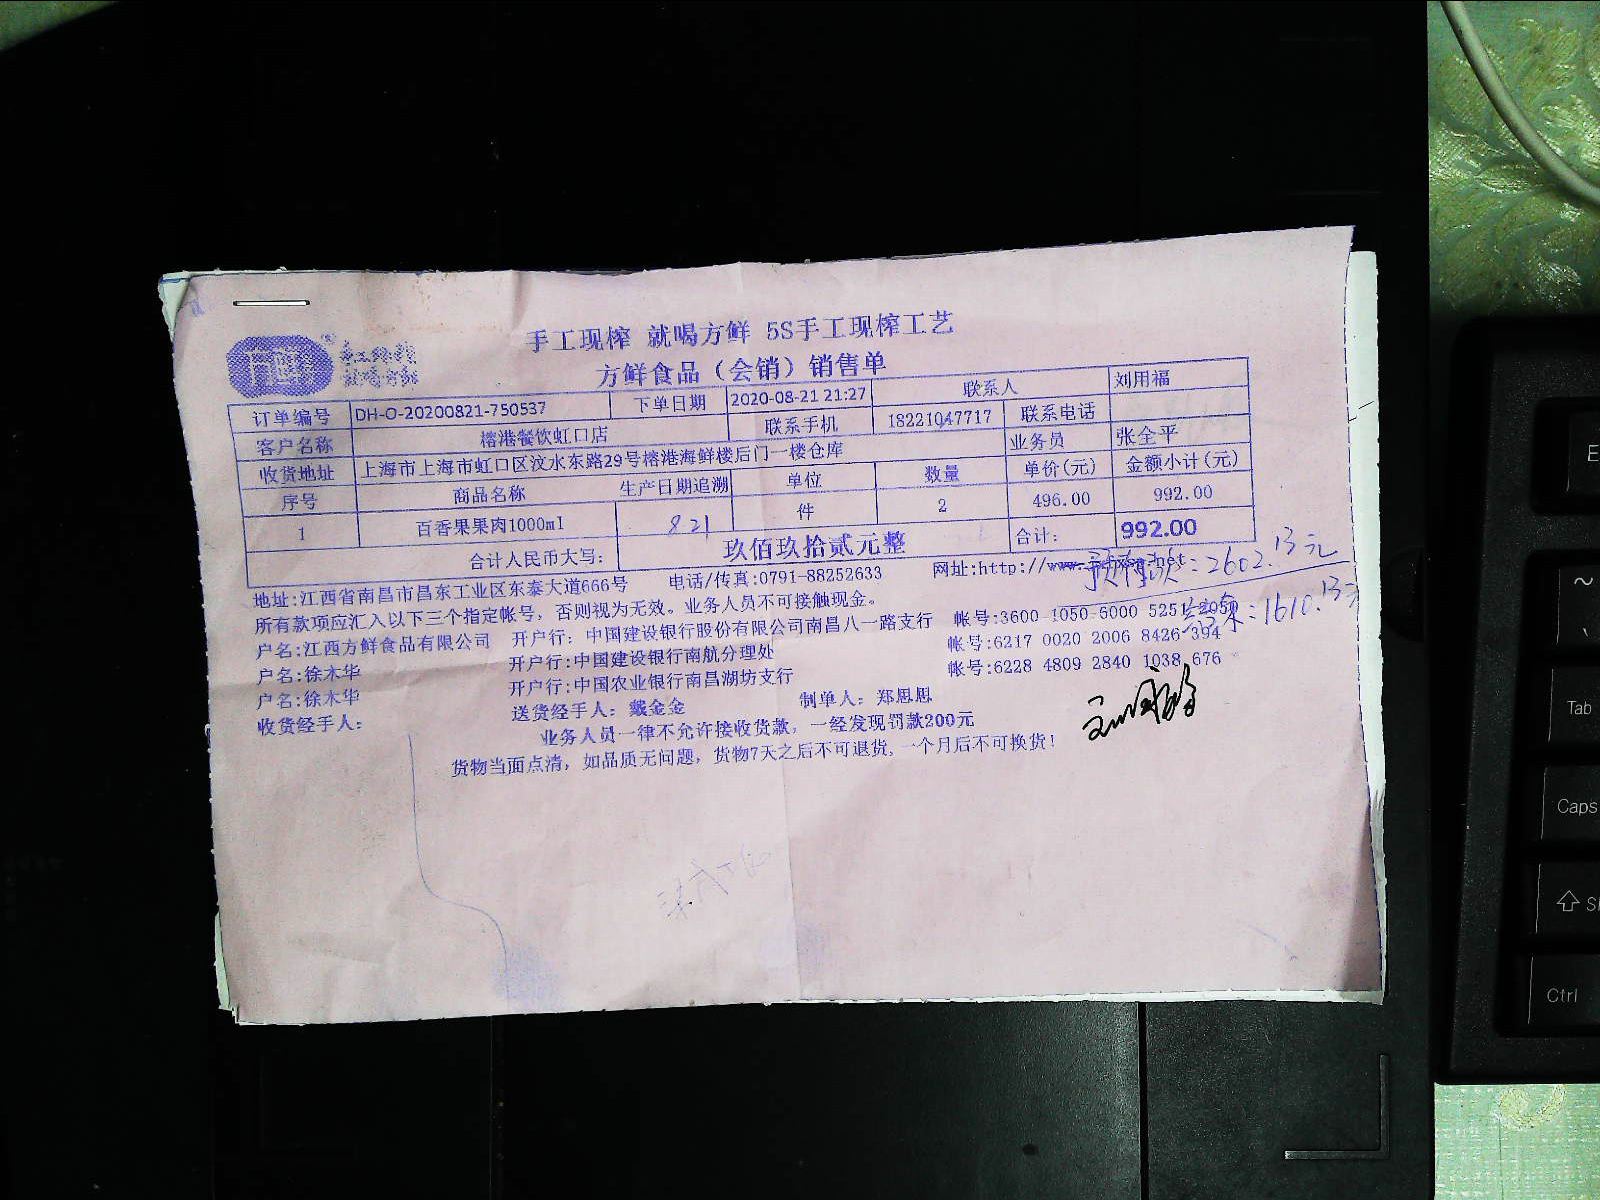 手工现榨 就喝方鲜 5S手工现榨工艺
方鲜食品（会销）销售单
订单编号 DH-O-20200821-750537 下单日期 2020-08-21 21:27 联系人 刘用福
客户名称 榕港餐饮虹口店 联系手机 18221047717 联系电话
收货地址 上海市上海市虹口区汶水东路29号榕港海鲜楼后门一楼仓库 业务员 张全平
序号 商品名称 生产日期追溯 单位 数量 单价(元) 金额小计(元)
1 百香果果肉1000ml 821 件 2 496.00 992.00
合计人民币大写: 玖佰玖拾贰元整 合计: 992.00
地址:江西省南昌市昌东工业区东泰大道666号 电话/传真:0791-88252633 网址:http://www.
预付款:2602.13元
所有款项应汇入以下三个指定帐号，否则视为无效。业务人员不可接触现金。
户名:江西方鲜食品有限公司 开户行: 中国建设银行股份有限公司南昌八一路支行 帐号:3600 1050 6000 5251
:1610.13元
户名:徐木华 开户行:中国建设银行南航分理处 帐号:6217 0020 2006 8426 394
户名:徐木华 开户行:中国农业银行南昌湖坊支行 帐号:6228 4809 2840 1038 676
收货经手人: 送货经手人: 戴金金 制单人: 郑思思
业务人员一律不允许接收货款，一经发现罚款200元
货物当面点清，如品质无问题，货物7天之后不可退货,一个月后不可换货！
Tab
Caps
Ctrl